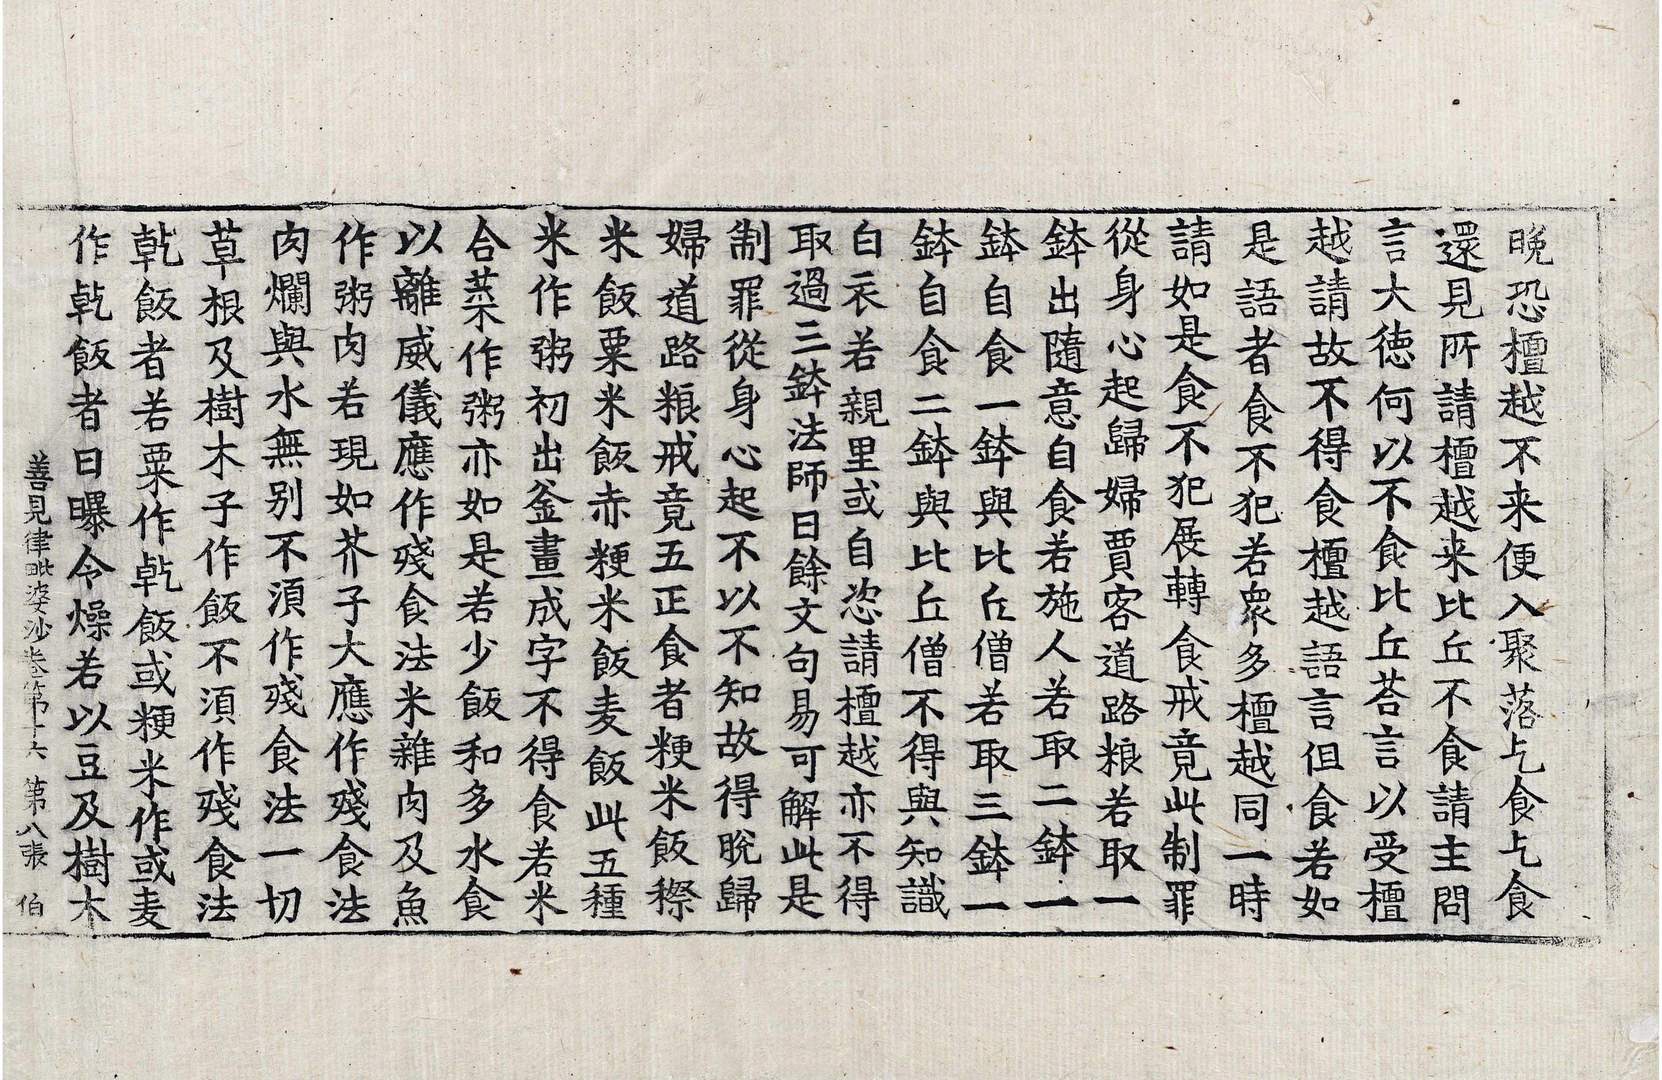 晚恐檀越不来便入聚落乞食乞食
還見所請檀越来比丘不食請主問
言大徳何以不食比丘荅言以受檀
越請故不得食檀越語言但食若如
是語者食不犯若衆多檀越同一時
請如是食不犯展轉食戒竟此制罪
從身心起歸婦賈客道路粮若取一
鉢出隨意自食若施人若取二鉢一
鉢自食一鉢與比丘僧若取三鉢一
鉢自食二鉢與比丘僧不得與知識
白衣若親里或自恣請檀越亦不得
取過三鉢法師曰餘文句易可解此是
制罪從身心起不以不知故得脫歸
婦道路粮戒竟五正食者粳米飯穄
米飯粟米飯赤粳米飯麦飯此五種
米作粥初出釜畫成字不得食若米
合菜作粥亦如是若少飯和多水食
以離威儀應作殘食法米雜肉及魚
作粥肉若現如芥子大應作殘食法
肉爛與水無别不湏作殘食法一切
草根及樹木子作飯不湏作殘食法
乹飯者若粟作乹飯或粳米作或麦
作乹飯者日曝令燥若以豆及樹木
善見律毗婆沙卷第十六 第八張 伯